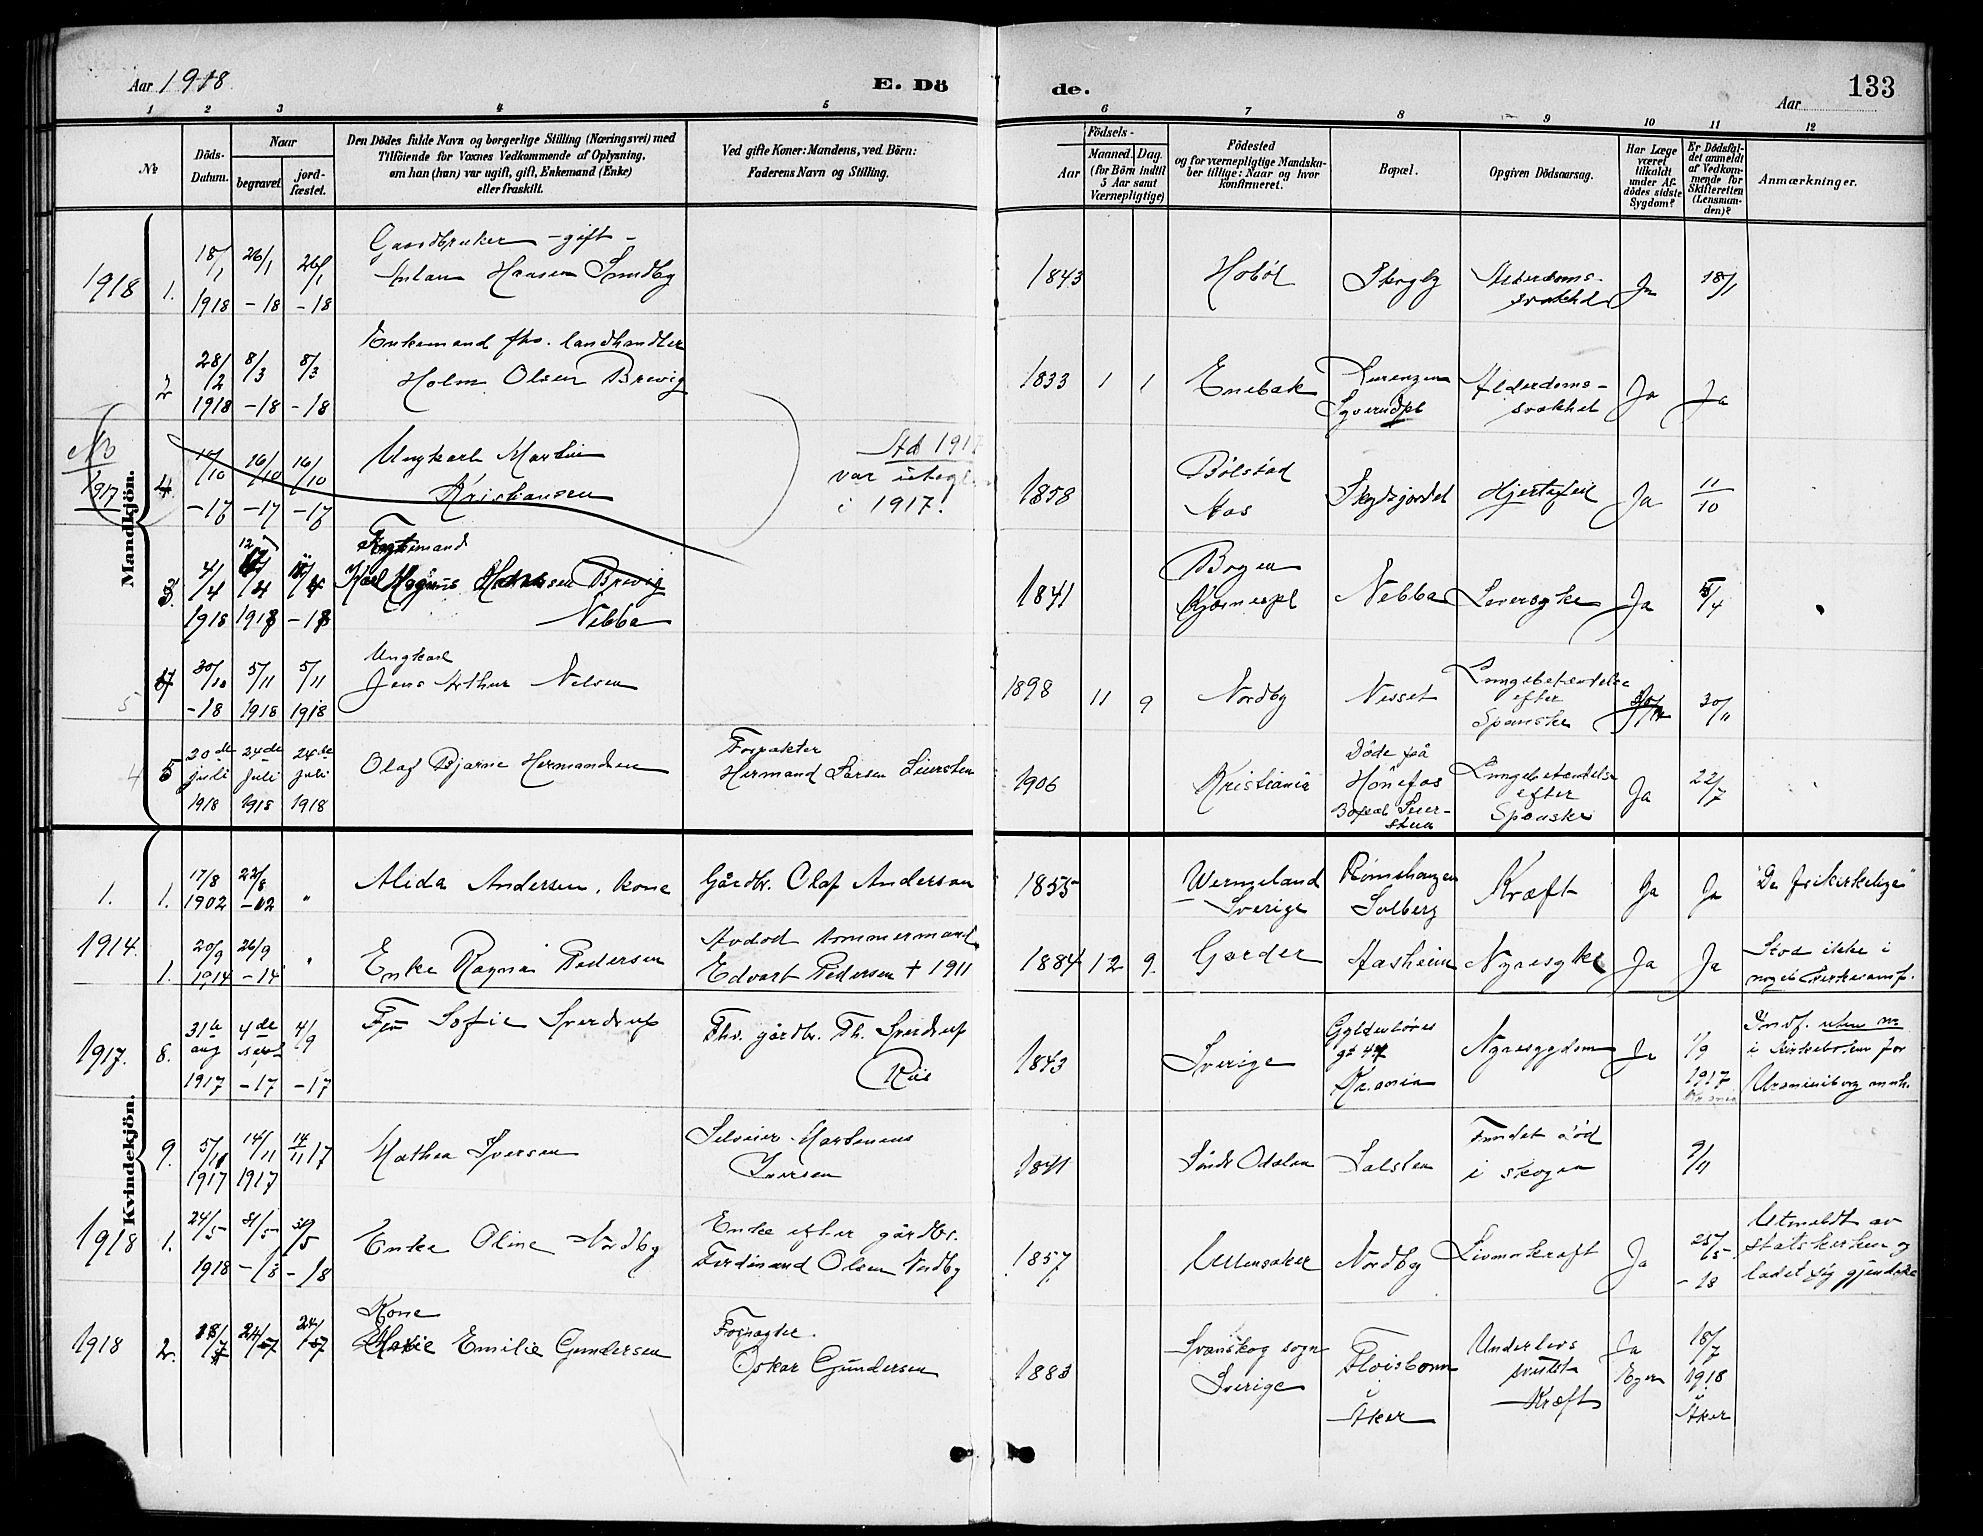 Aar 1918.
E. Dö
de.
Aar
133
1 2 3 4 5
6 7 8 9 10 11 12
№
Döds-Datum.
Naar
begravet.
jord-fæstet.
Den Dödes fulde Navn og borgerlige Stilling (Næringsvei) med
Tilföiende for Voxnes Vedkommende af Oplysning,
om han (hun) var ugift, gift, Enkemand (Enke)
eller fraskilt.
Ved gifte Koner: Mandens, ved Börn:
Faderens Navn og Stilling.
Födsels-
Aar
Maaned. Dag.
(for Börn indtil
5 Aar samt
Værnepligtige)
Födested
og for værnepligtige Mandska-
ber tillige: Naar og hvor
konfirmeret.
Bopæl.
Opgiven Dödsaarsag.
Har Læge
været
tilkaldt
under Af-
dödes sidste
Sygdom?
Er Dödsfal-
det anmeldt
af Vedkom-
mende for
Skifteretten
(Lensman-
den)?
Anmærkninger.
Mandkjön.
1918 1. 18/1 1918 26/1 -18 26/1 -18
Gaardbruker - gift -
Hansen Sundby
1843 Hobøl Skogby Alderdoms-
svakhed Ja 18/1
2 28/2 1918 8/3 -18 8/3 -18
Enkemand fhv. landhandler
Holm Olsen Brevig
1833 1 1 Enebak Syverudpl Alderdoms-
svakhet Ja Ja
No
1917 4. 10/10 -17 16/10 -17 16/10 -17
Ungkarl Martin
Kristiansen
Std 1917
var utegl.
i 1917!
1858 Bølstad
Aas Skydsjordet Hjertefeil Ja 11/10
3. 4/4 1918 12/4 1918 /4 -18
Karl Magnus Hansen Brevig
Nebba
1841 Bogen
Kjærnespl Nebba Leversyke Ja 5/4
5 30/10 -18 5/11 1918 5/11 1918
Ungkarl
Jens Arthur Nelsen
1898 11 9 Nordby Nesset Lungebetændelse
efter
Spanske 30/11
4 5 20de juli 1918 24de juli 1918 24de juli 1918
Olaf Bjarne Hermandsen
Forpakter
Hermand Larsen Seiersten
1906 Kristiania Døde på
Hønefos
Bopæl Seier-
sten Lungebetændelse
efter
Spanske Ja 22/7
Kvindekjön.
1. 1. 17/8 1902 22/8 -02 "
Alida Andersen, kone
Gårdbr. Olaf Andersen
1855 Wermeland
Sverige Rømshaugen
Solberg Kræft Ja Ja "De frikirkelige"
1914. 1. 20/9 1914 26/9 -14 "
Enke Ragna Pedersen
Avdød tømmermand
Edvart Pedersen + 1911
1884 12 9. Garder Aasheim Nyresyke Ja Ja Stod ikke i
noget kirkesamf.
1917. 8. 31te aug 1917 4de sept -17 4/9 -17
Fru Sofie Sverdrup
Fhv. gårdbr. Th. Sverdrup
Riis
1843 Sverige Gyldenløves
gt 44
Kr.ania Nyresygdom Ja 1/9
1917 Indf. uten no
i kirkeboken for
Uranienborg mnh.
9. 5/11 1917 14/11 1917 14/11 17
Mathea Iversen
Selveier Martinius
Iversen
1841 Søndr Odalen Salsten Fundet død
i skogen 9/11
1918 1. 24/5 1918 31/5 -18 31/5 -18
Enke Oline Nordby
Enke efter gårdbr.
Ferdinand Olsen Nordby
1857 Ullensaker Nordby Livmorkræft Ja 25/5
-18 Utmeldt av
statskirken og
ladet sig gjendøbe
1918 2. 18/7 24/7 24/7
Kone
Marie Emilie Gundersen
Forpagter
Oskar Gundersen
1883 Svanskog sogn
Sverige Fløisbonn
i
Aker Underlivs
svulst
Kræft Ja
18/7
1918
Aker